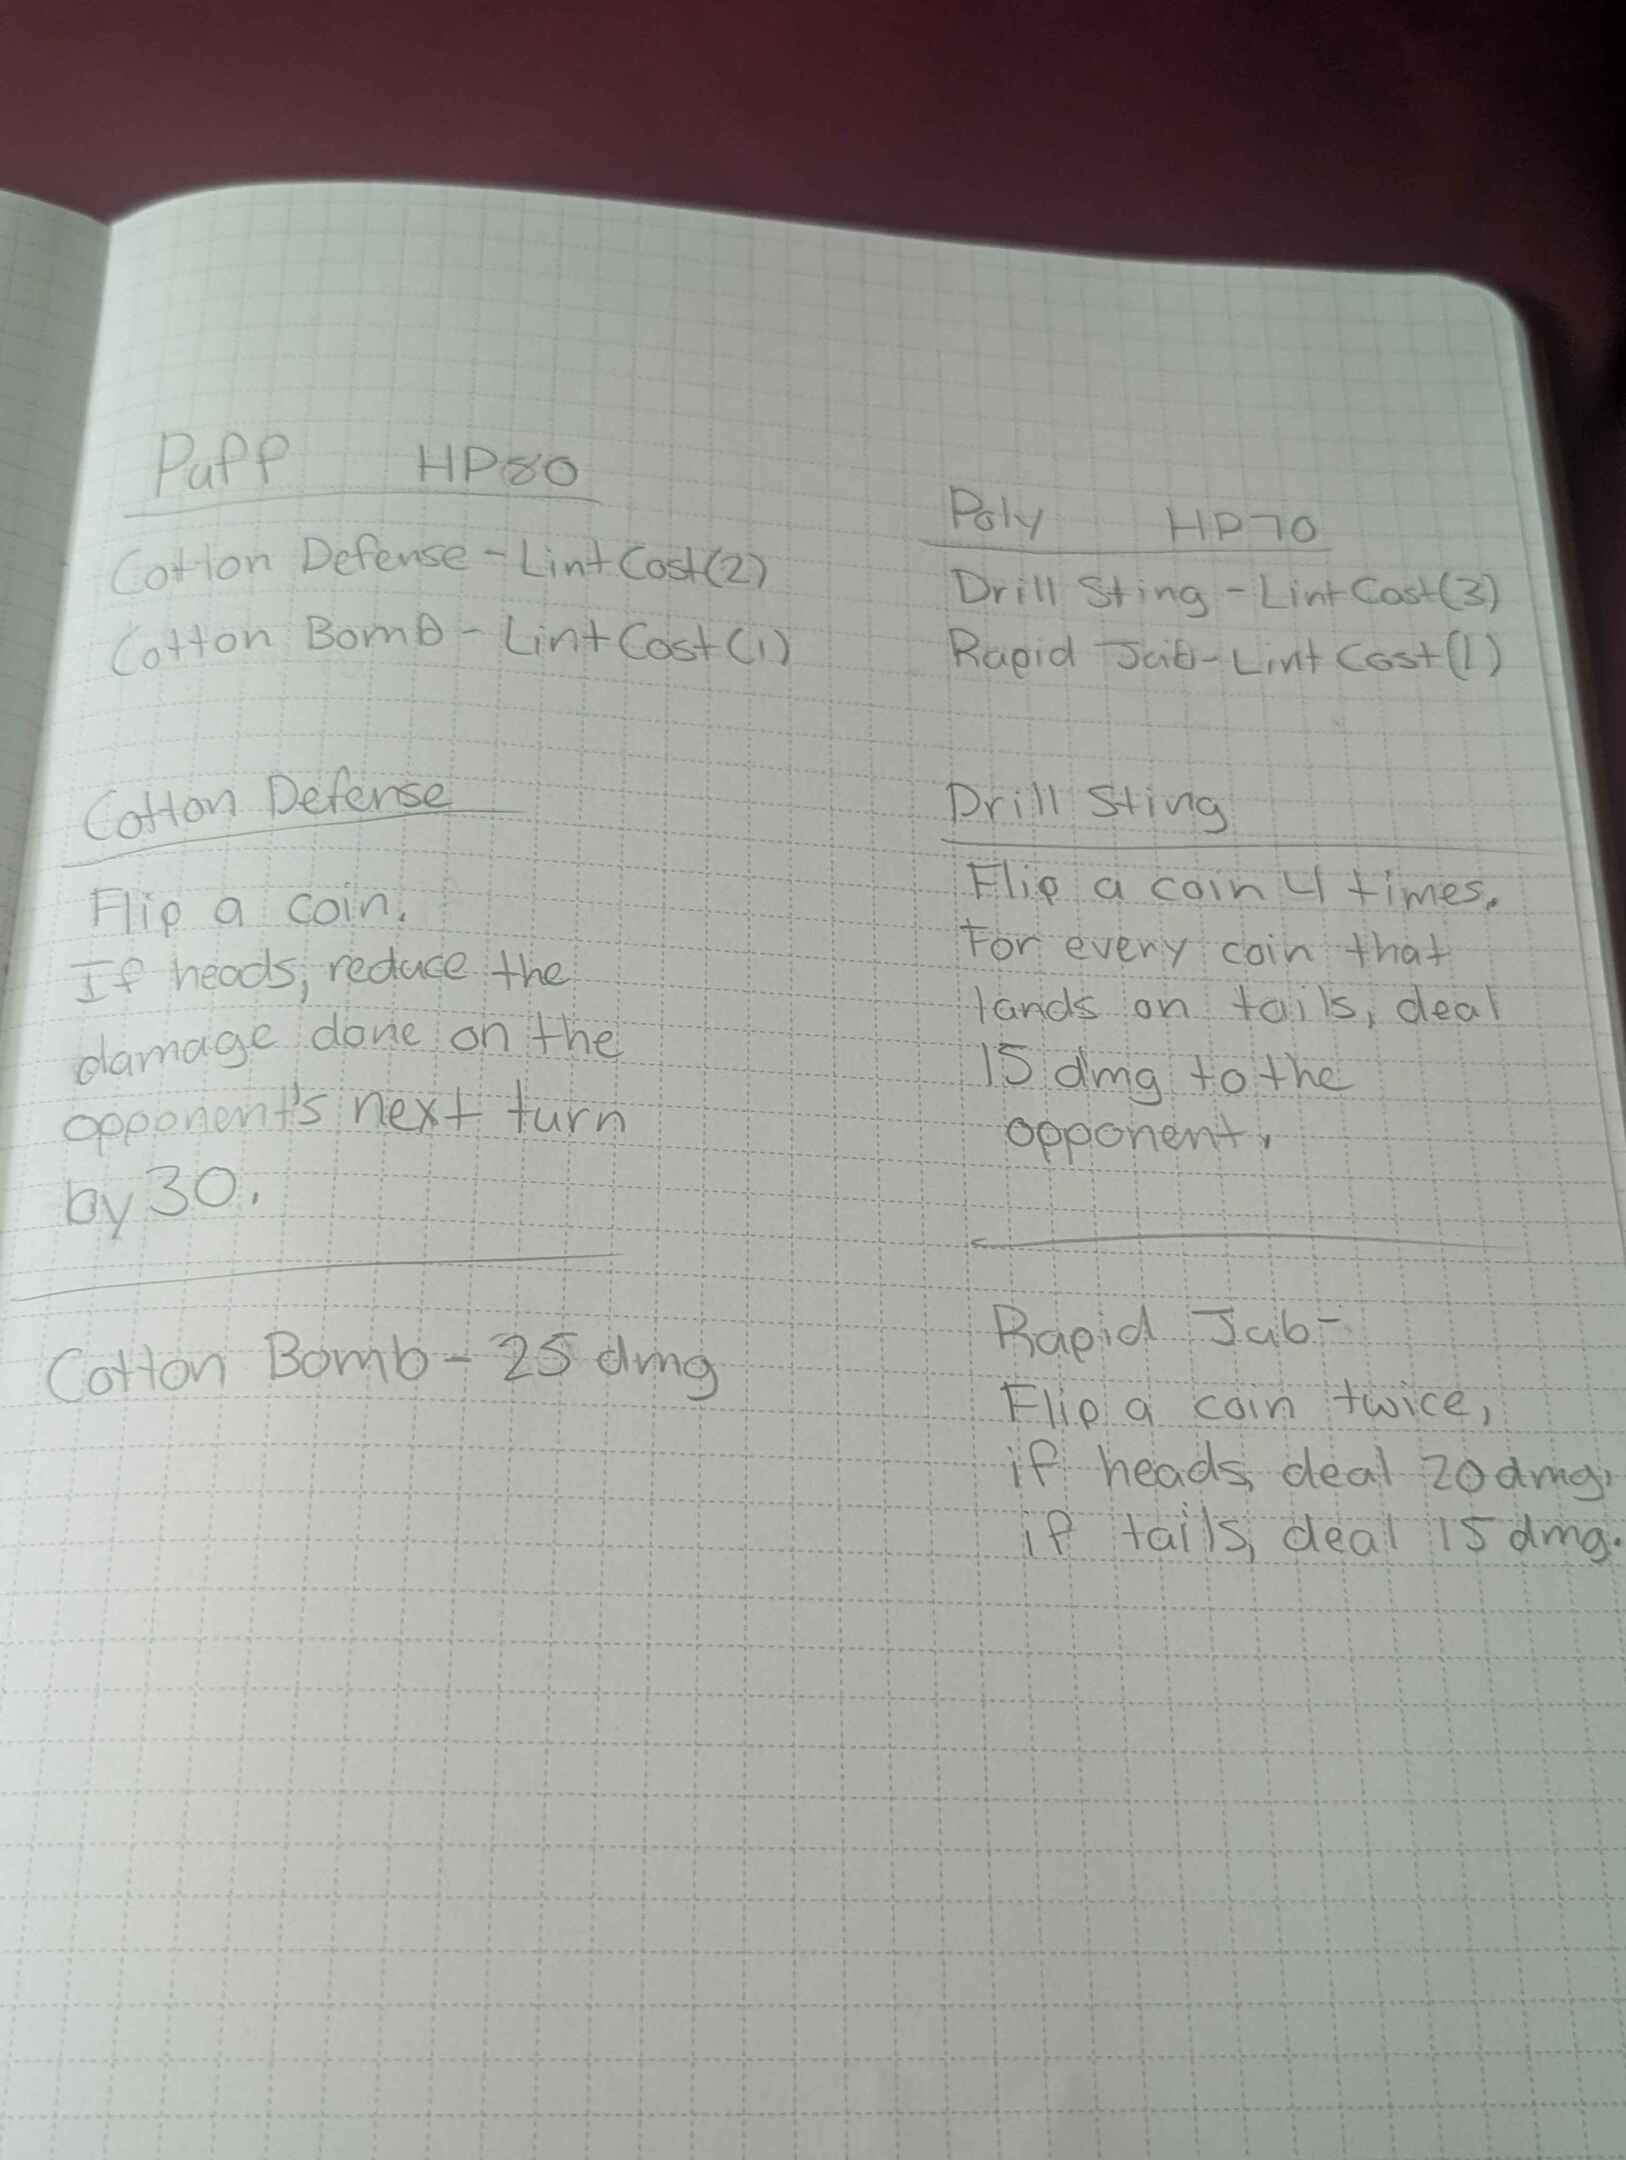 Puff HP80
Cotton Defense - Lint Cost(2)
Cotton Bomb - Lint Cost(1)
Cotton Defense
Flip a coin.
If heads, reduce the
damage done on the
opponent's next turn
by 30.
Cotton Bomb - 25 dmg
Poly HP70
Drill Sting - Lint Cost(3)
Rapid Jab - Lint Cost(1)
Drill Sting
Flip a coin 4 times.
For every coin that
lands on tails, deal
15 dmg to the
opponent.
Rapid Jab -
Flip a coin twice,
if heads, deal 20 dmg,
if tails, deal 15 dmg.